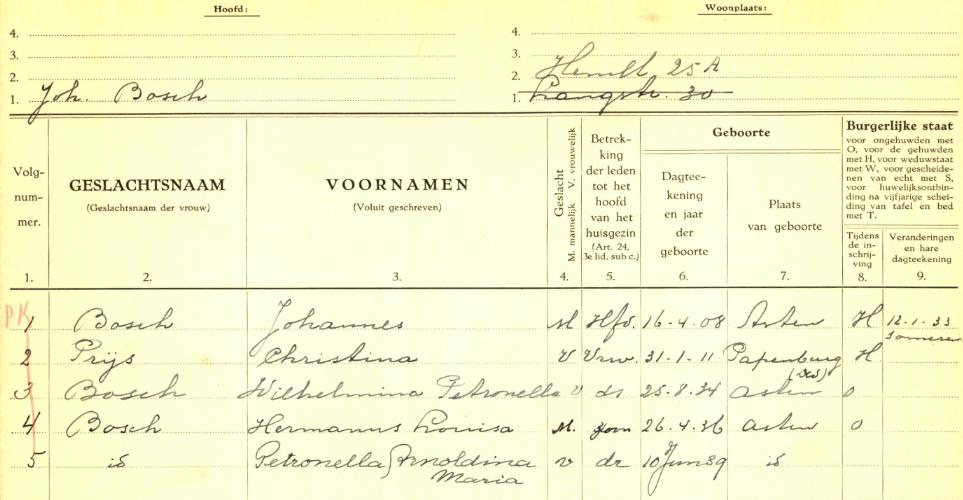 Hoofd: Woonplaats:
4. 4.
3. 3.
2. 2. Hemel 25A
1. Joh. Bosch 1. Langstr. 30
Volg-
num-
mer.
GESLACHTSNAAM
(Geslachtsnaam der vrouw)
VOORNAMEN
(Voluit geschreven)
Geslacht
M. mannelijk V. vrouwelijk
Betrek-
king
der leden
tot het
hoofd
van het
huisgezin
(Art. 24,
3e lid, sub c.)
Geboorte
Dagtee-
kening
en jaar
der
geboorte
Plaats
van geboorte
Burgerlijke staat
voor ongehuwden met
O, voor de gehuwden
met H, voor weduwstaat
met W, voor gescheide-
nen van echt met S,
voor huwelijksontbin-
ding na vijfjarige schei-
ding van tafel en bed
met T.
Tijdens
de in-
schrij-
ving
Veranderingen
en hare
dagteekening
1. 2. 3. 4. 5. 6. 7. 8. 9.
PK
1 Bosch Johannes M Hfd. 16-4-08 Asten H 12-1-33
Someren
2 Prijs Christina V Vrw. 31-1-11 Papenburg H
3 Bosch Wilhelmina Petronella v dr 25-8-34 Asten O
4 Bosch Hermanus Louisa M. zoon 26-4-36 Asten O
5 id Petronella Arnoldina v dr 10 Juni 39 id
Maria